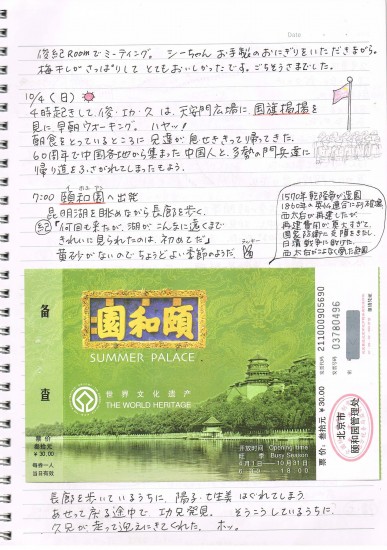 Date
俊紀Roomでミーティング。シーちゃんお手製のおにぎりをいただきながら。
梅干しがさっぱりしてとてもおいしかったです。ごちそうさまでした。
10/4(日)
4時起きして、俊・功・久は、天安門広場に国旗掲揚を
見に早朝ウオーキング。ハヤッ!
朝食をとっているところに兄達が息せききって帰ってきた。
60周年で中国各地から集まった中国人と、多勢の門兵達に
帰り道をふさがれてしまったそう。
7:00 頤和園へ出発
昆明湖を眺めながら長廊を歩く。
紀「何回も来たが、湖がこんなに遠くまで
きれいに見られたのは、初めてだ」
黄砂がないのでちょうどよい季節のようだ。
ラッキー
1570年乾隆帝が造園
1860年の英仏連合にお破壊
西太台が再建したが、
再建費用が莫大すぎて
国家防衛に支障をきたし
日清戦争に敗けた。
備查
頤和園
SUMMER PALACE
世界文化遗产
THE WORLD HERITAGE
开放时间 Opening time
旺季 Busy Season
4月1日—10月31日
票价:
叁拾元
¥30.00
每券一人
当日有效
票价:叁拾元 ¥30.00
发票代码 211000905690
发票号码 03780496
北京市
颐和园管理处
長廊を歩いているうちに、陽子・七生美はぐれてしまう。
あせって戻る途中で功兄発見。そうこうしているうちに、
久兄が走って迎えにきてくれた。ホッ。